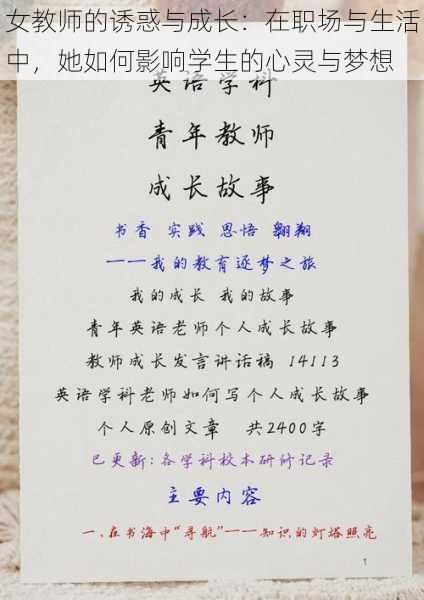 女教师的诱惑与成长：在职场与生活
中，她如何影响学生的心灵与梦想
英语学科
青年教师
成长故事
书香 实践 思悟 翱翔
——我的教育逐梦之旅
我的成长 我的故事
青年英语老师个人成长故事
教师成长发言讲话稿 14113
英语学科老师如何写个人成长故事
个人原创文章 共2400字
已更新:各学科校本研修记录
主要内容
一、在书海中“寻航”——知识的灯塔照亮
1